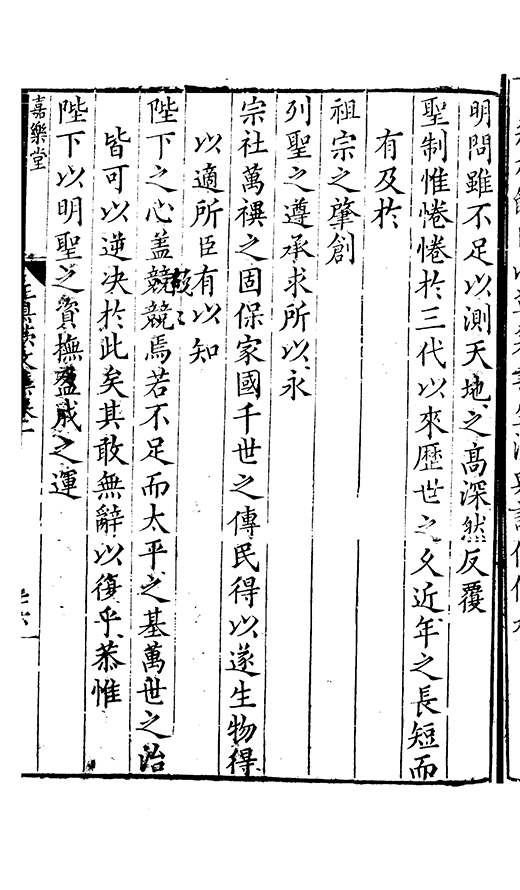 明問雖不足以測天地之高深然反覆
聖制惟惓惓於三代以來歷世之久近年之長短而
有及於
祖宗之肇創
列聖之遵承求所以永
宗社萬禩之固保家國千世之傳民得以遂生物得
以適所臣有以知
陛下之心蓋兢兢焉若不足而太平之基萬世之治
皆可以逆決於此矣其敢無辭以復乎恭惟
陛下以明聖之資撫盈成之運
嘉樂堂